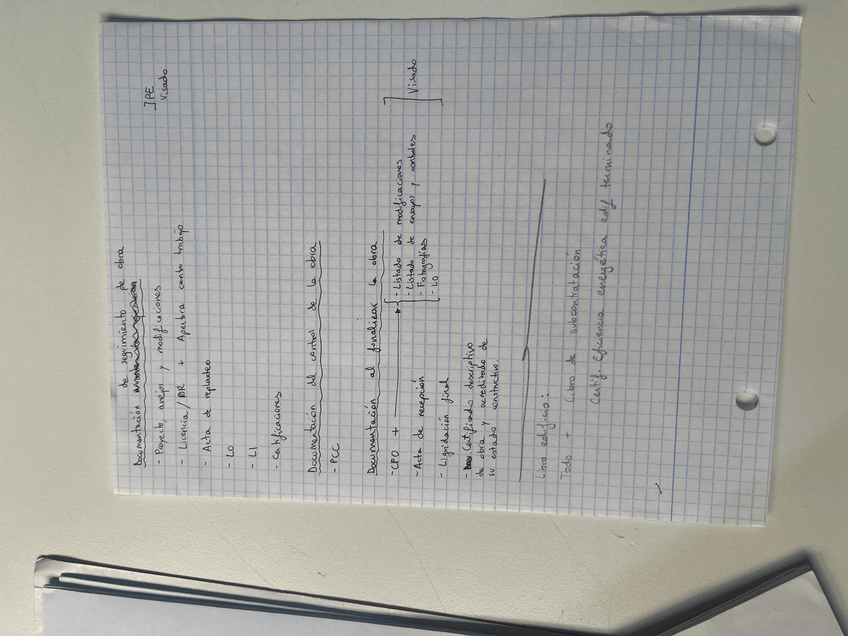 Documentación de seguimiento de obra
- Proyecto, anejos y modificaciones ] PE Visado
- Licencia/DR + Apertura centro trabajo
- Acta de replanteo
- LO
- LI
- Certificaciones
Documentación del control de la obra
- PCC
Documentación al finalizar la obra
- CFO +
- Listado de modificaciones
- Listado de ensayos y controles
- Fotografías
- LO
] Visado
- Acta de recepción
- Liquidación final
- Certificados descriptivo
de obra y acreditado de
su estado constructivo.
Libro edificio:
Todo + Libro de subcontratación
Certif. Eficiencia energética edif terminado